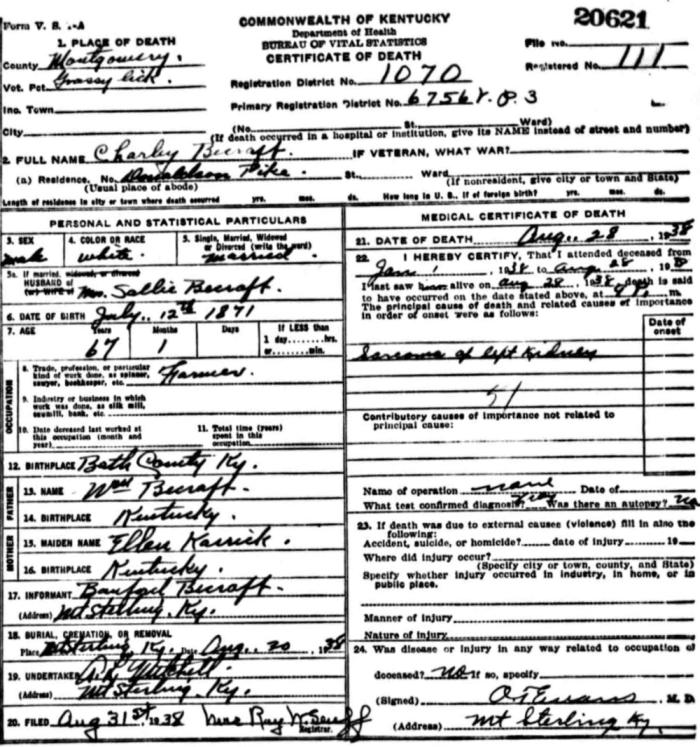 Form V. S. 1-A
COMMONWEALTH OF KENTUCKY
Department of Health
BUREAU OF VITAL STATISTICS
CERTIFICATE OF DEATH
20621
File No.
Registered No. 111
1. PLACE OF DEATH
County Montgomery
Vot. Pct. Grassy Lick
Inc. Town
City
Registration District No. 1070
Primary Registration District No. 6756
(No. St. Ward)
(If death occurred in a hospital or institution, give its NAME instead of street and number)
2. FULL NAME Charley Becraft IF VETERAN, WHAT WAR?
(a) Residence. No. Donaldson Pike St. Ward
(Usual place of abode) (If nonresident, give city or town and State)
Length of residence in city or town where death occurred yrs. mos. ds. How long in U. S., if of foreign birth? yrs. mos. ds.
PERSONAL AND STATISTICAL PARTICULARS
3. SEX male
4. COLOR OR RACE white
5. Single, Married, Widowed or Divorced (write the word) married
5a. If married, widowed, or divorced
HUSBAND of
(or) WIFE of Mrs. Sallie Becraft
6. DATE OF BIRTH July 12th 1871
7. AGE Years 67 Months 1 Days If LESS than
1 day, hrs.
or min.
OCCUPATION
8. Trade, profession, or particular
kind of work done, as spinner,
sawyer, bookkeeper, etc. Farmer
9. Industry or business in which
work was done, as silk mill,
sawmill, bank, etc.
10. Date deceased last worked at
this occupation (month and
year)
11. Total time (years)
spent in this
occupation
12. BIRTHPLACE Bath County Ky.
FATHER
13. NAME Wm Becraft
14. BIRTHPLACE Kentucky
MOTHER
15. MAIDEN NAME Ellen Karrick
16. BIRTHPLACE Kentucky
17. INFORMANT Becraft
(Address) Mt Sterling, Ky.
18. BURIAL, CREMATION, OR REMOVAL
Place Mt Sterling Ky. Date Aug. 1938
19. UNDERTAKER Mitchell
(Address) Mt Sterling, Ky.
20. FILED Aug 31st 1938 Mrs Ray
Registrar.
MEDICAL CERTIFICATE OF DEATH
21. DATE OF DEATH Aug. 28, 1938
22. I HEREBY CERTIFY, That I attended deceased from
Jan 1, 1938 to Aug 28, 19
I last saw him alive on Aug 28, 1938, death is said
to have occurred on the date stated above, at m.
The principal cause of death and related causes of importance
in order of onset were as follows:
Date of
onset
Sarcoma of left Kidney
51
Contributory causes of importance not related to
principal cause:
Name of operation none Date of
What test confirmed diagnosis? Was there an autopsy? no
23. If death was due to external causes (violence) fill in also the
following:
Accident, suicide, or homicide? date of injury 19
Where did injury occur?
(Specify city or town, county, and State)
Specify whether injury occurred in industry, in home, or in
public place.
Manner of injury
Nature of injury
24. Was disease or injury in any way related to occupation of
deceased? No If so, specify
(Signed) Evans M. D.
(Address) Mt Sterling Ky.